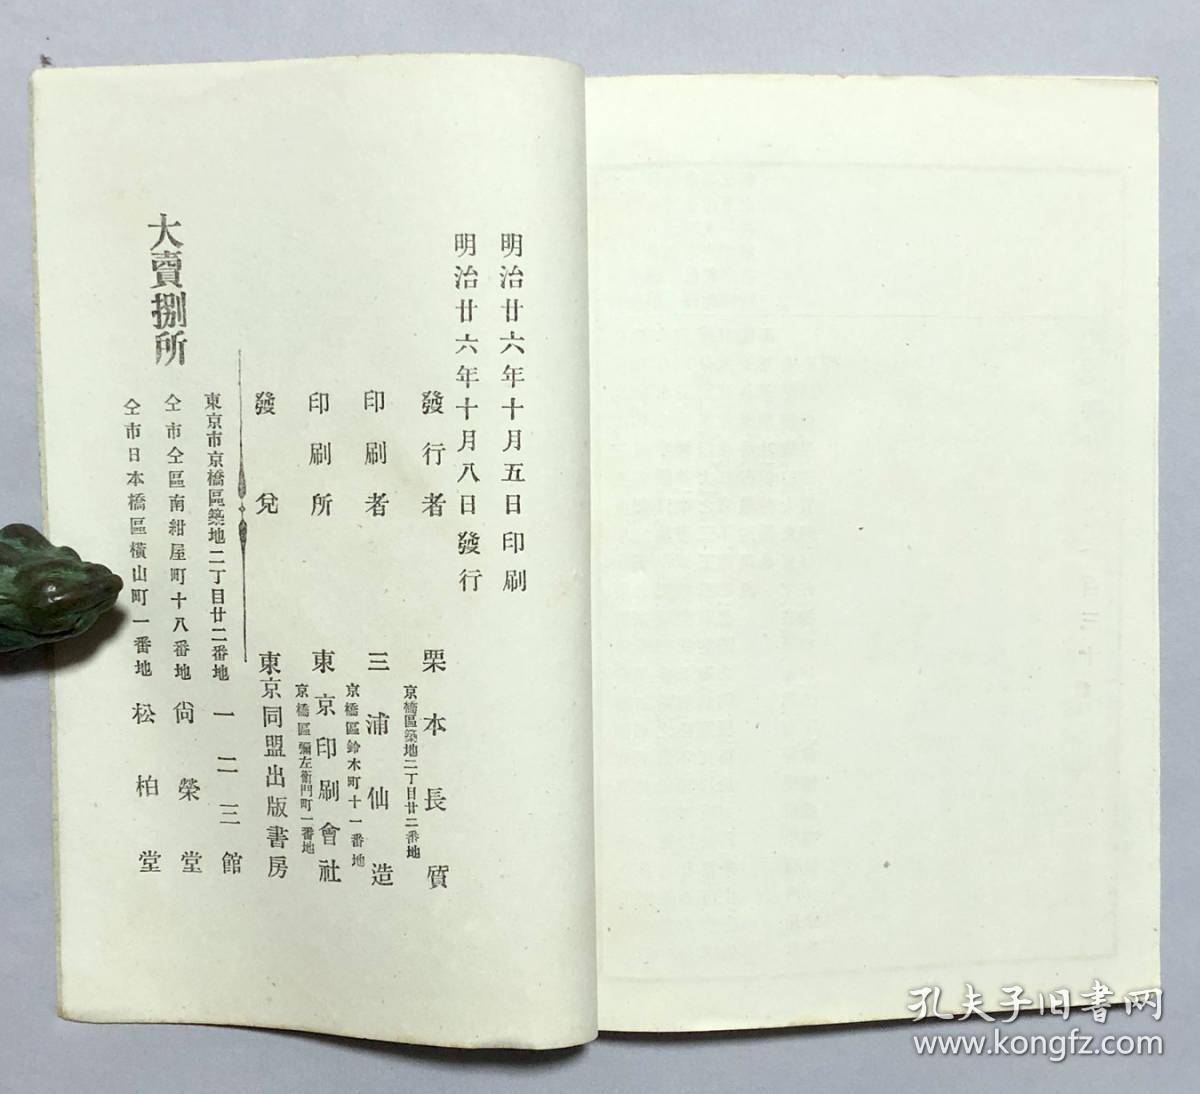 明治廿六年十月五日印刷
明治廿六年十月八日發行
發行者 栗本長質
京橋區築地二丁目廿二番地
印刷者 三浦仙造
京橋區鈴木町十一番地
印刷所 東京印刷會社
京橋區彌左衞門町一番地
發兌 東京同盟出版書房
大賣捌所
東京市京橋區築地二丁目廿二番地 一二三館
仝市仝區南紺屋町十八番地 尙榮堂
仝市日本橋區橫山町一番地 松柏堂
孔夫子旧书网
www.kongfz.com